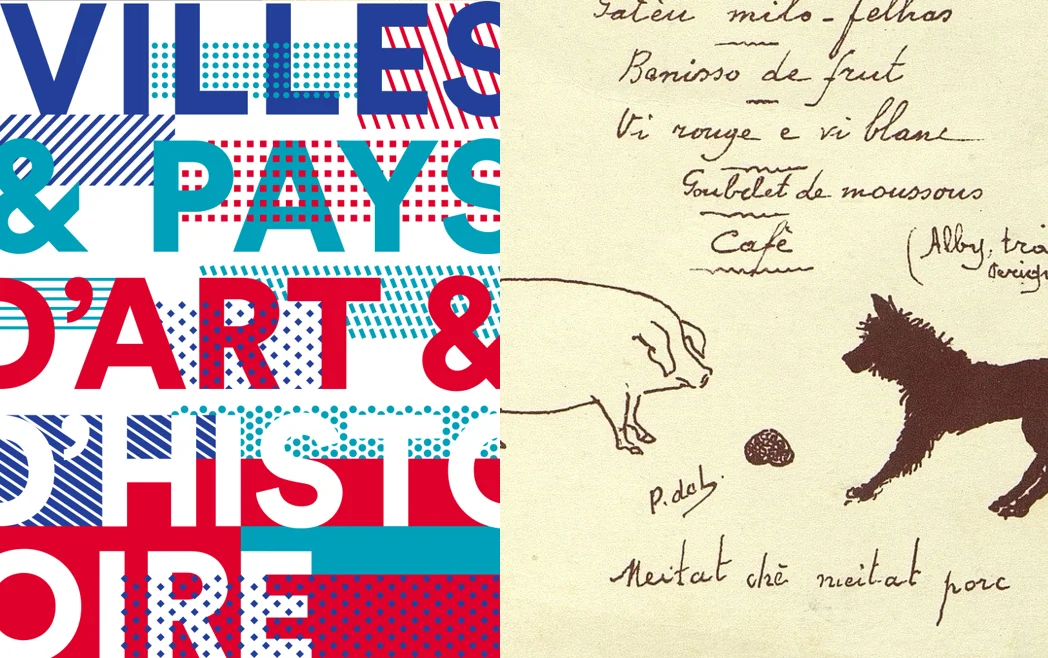 VILLES
& PAYS
D'ART &
D'HISTO
OIRE
Gatèu milo-felhas
Banisso de frut
Vi rouge e vi blanc
Goubelet de moussous
Cafè
(Alby, trà
P. dch.
Meitat chè meitat porc